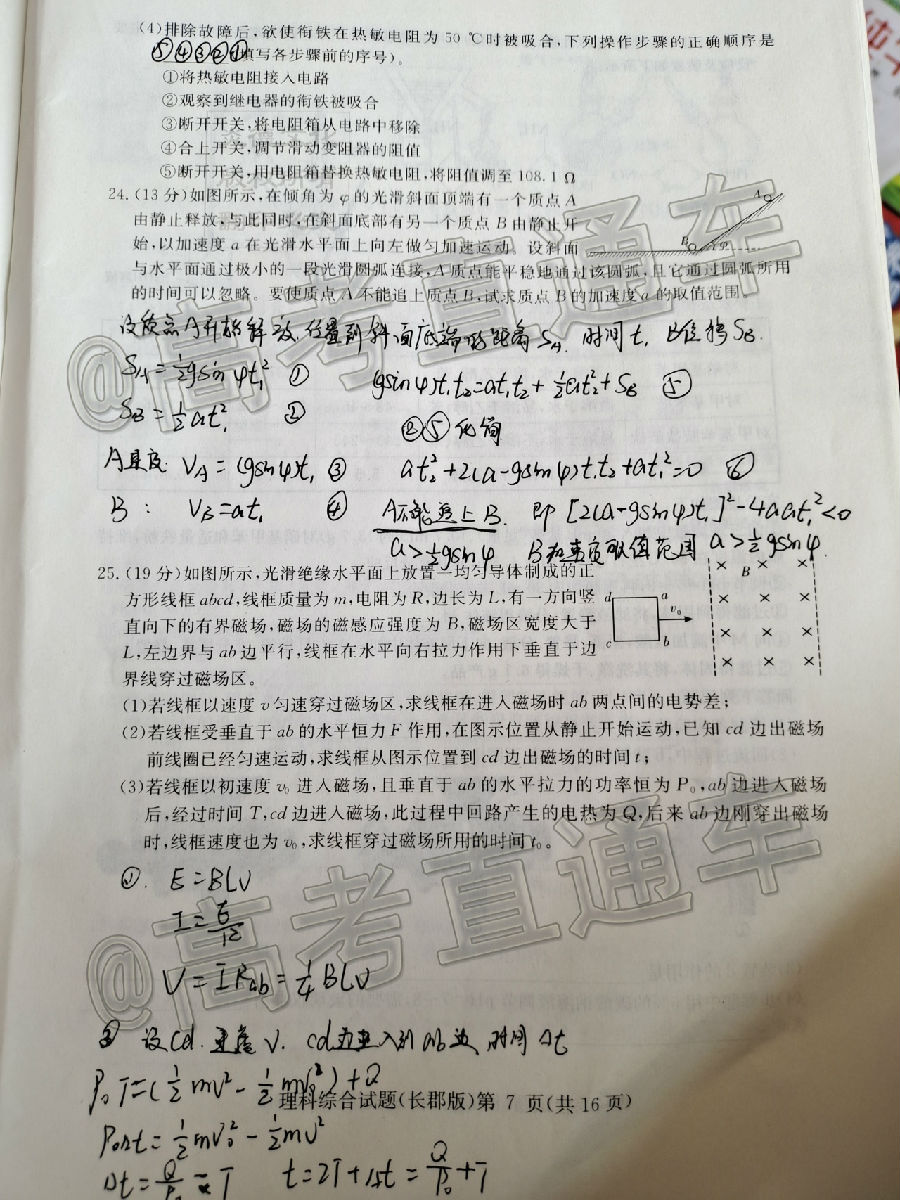 (4)排除故障后,欲使衔铁在热敏电阻为50 ℃时被吸合,下列操作步骤的正确顺序是
⑤④③②①填写各步骤前的序号)。
①将热敏电阻接入电路
②观察到继电器的衔铁被吸合
③断开开关,将电阻箱从电路中移除
④合上开关,调节滑动变阻器的阻值
⑤断开开关,用电阻箱替换热敏电阻,将阻值调至108.1 Ω
24.(13分)如图所示,在倾角为φ的光滑斜面顶端有一个质点A
由静止释放,与此同时,在斜面底部有另一个质点B由静止开
始,以加速度a在光滑水平面上向左做匀加速运动。设斜面
与水平面通过极小的一段光滑圆弧连接,A质点能平稳地通过该圆弧,且它通过圆弧所用
的时间可以忽略。要使质点A不能追上质点B,试求质点B的加速度a的取值范围。
A
B
φ
设质点A开始释放位置到斜面底端的距离SA. 时间t₁ B位移SB.
SA=½gsinφt₁² ①
(gsinφ)t₁t₂=at₁t₂+½at₂²+SB ⑤
SB=½at₁² ②
②⑤化简
A速度 VA=(gsinφ)t₁ ③
at₂²+2(a-gsinφ)t₁t₂+at₁²=0 ⑥
B: VB=at₁ ④
A不能追上B. 即[2(a-gsinφ)t₁]²-4a·at₁²<0
a>½gsinφ B加速度取值范围 a>½gsinφ
25.(19分)如图所示,光滑绝缘水平面上放置一均匀导体制成的正
方形线框abcd,线框质量为m,电阻为R,边长为L,有一方向竖
直向下的有界磁场,磁场的磁感应强度为B,磁场区宽度大于
L,左边界与ab边平行,线框在水平向右拉力作用下垂直于边
界线穿过磁场区。
d a
v₀
c b
B
(1)若线框以速度v匀速穿过磁场区,求线框在进入磁场时ab两点间的电势差;
(2)若线框受垂直于ab的水平恒力F作用,在图示位置从静止开始运动,已知cd边出磁场
前线圈已经匀速运动,求线框从图示位置到cd边出磁场的时间t;
(3)若线框以初速度v₀进入磁场,且垂直于ab的水平拉力的功率恒为P₀,ab边进入磁场
后,经过时间T,cd边进入磁场,此过程中回路产生的电热为Q,后来ab边刚穿出磁场
时,线框速度也为v₀,求线框穿过磁场所用的时间t₀。
①. E=BLv
I=E/R
V=IRab=¼BLv
③ 设cd 速度V. cd边进入到ab边 时间Δt
P₀T=(½mv²-½mv₀²)+Q
理科综合试题(长郡版)第 7 页(共16页)
P₀Δt=½mv₀²-½mv²
Δt=Q/P₀-T t=2T+Δt=Q/P₀+T
@高考直通车
@高考直通车